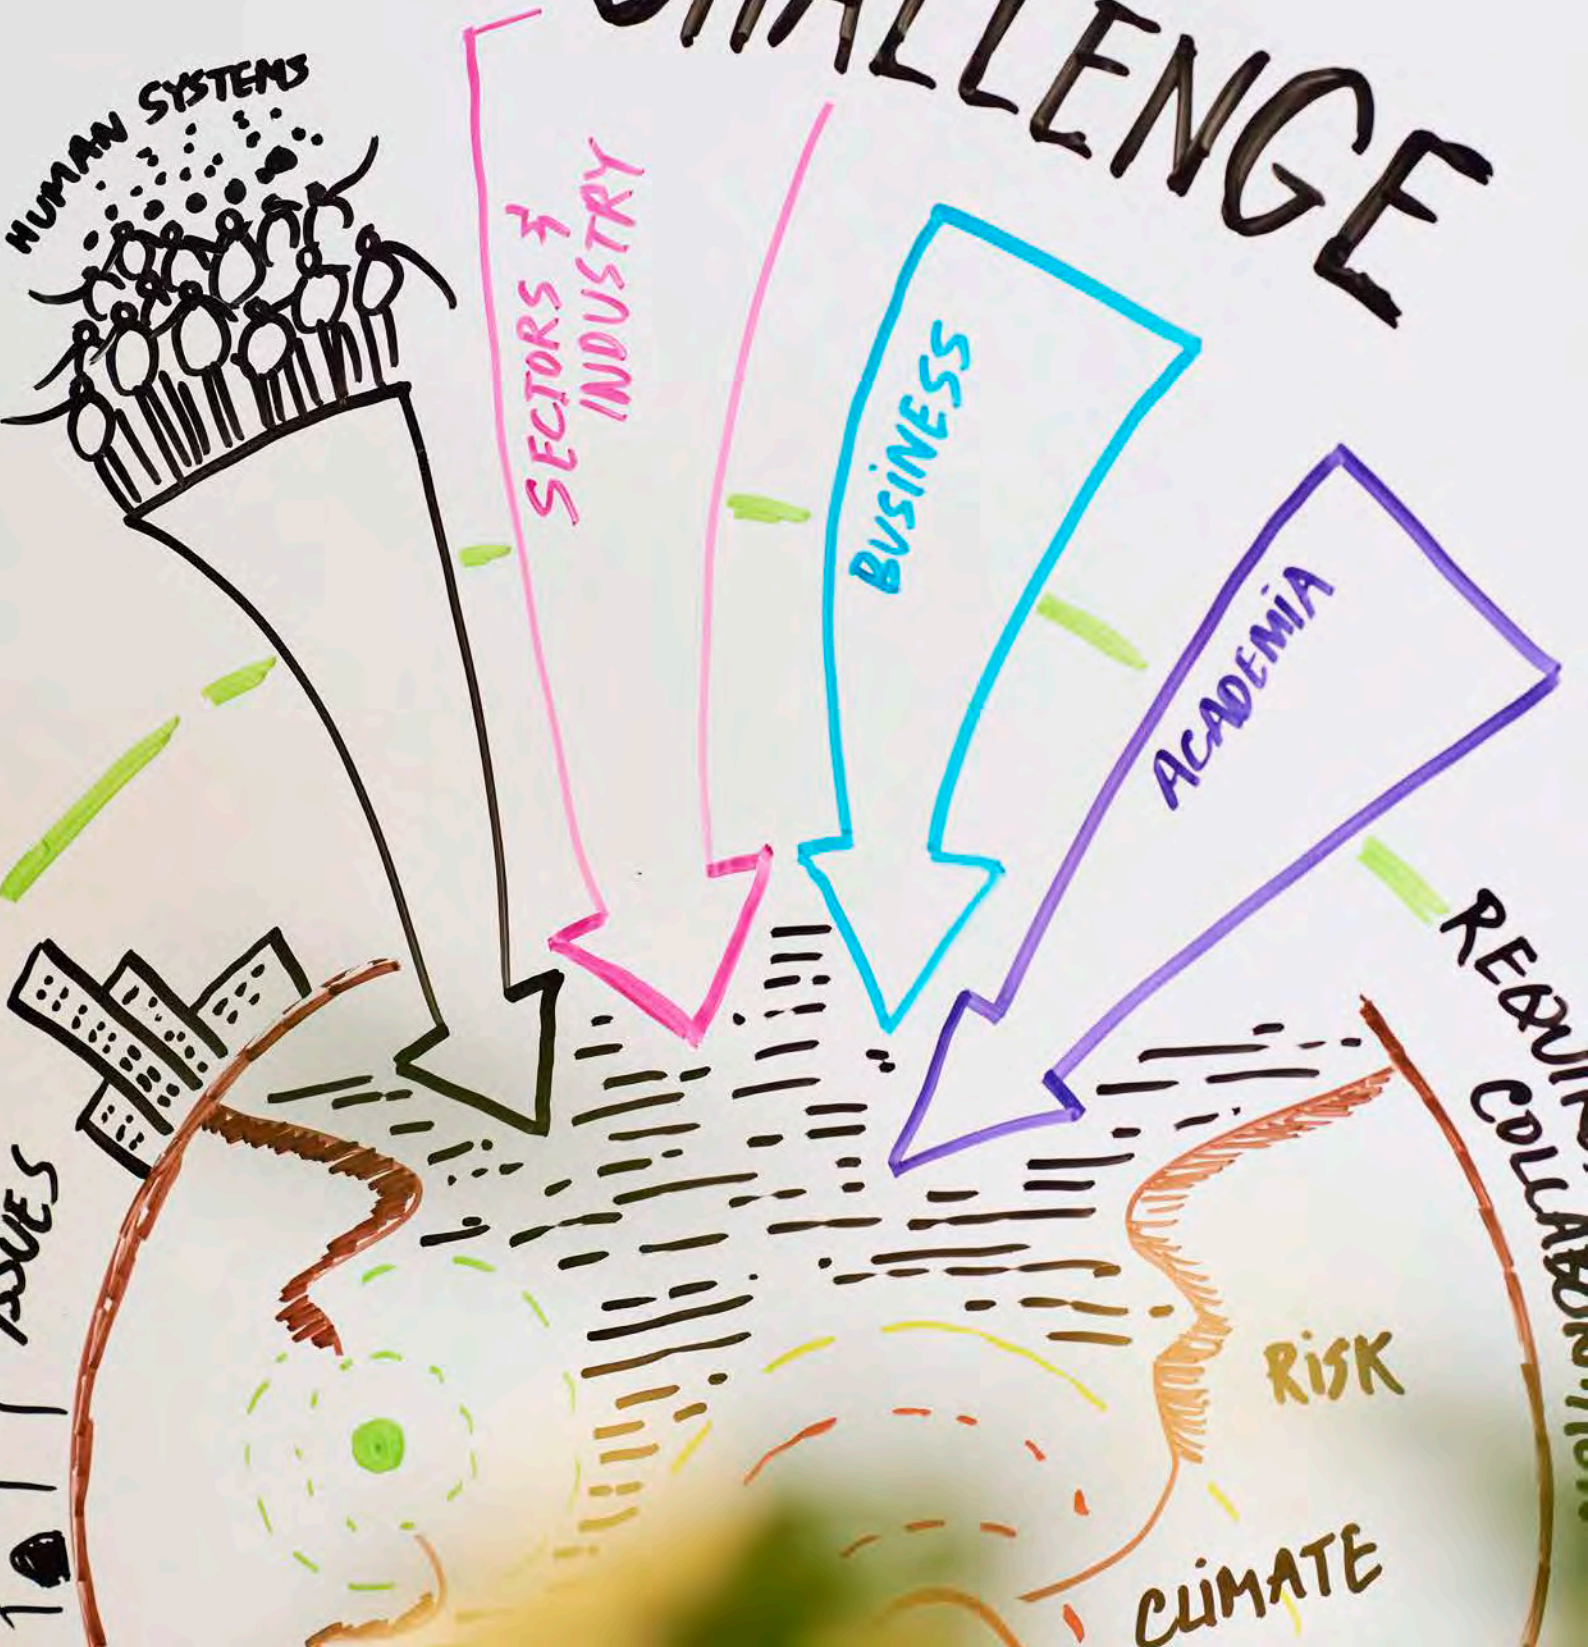 CHALLENGE
HUMAN SYSTEMS
SECTORS &
INDUSTRY
BUSINESS
ACADEMIA
COLLABORATION
RISK
CLIMATE